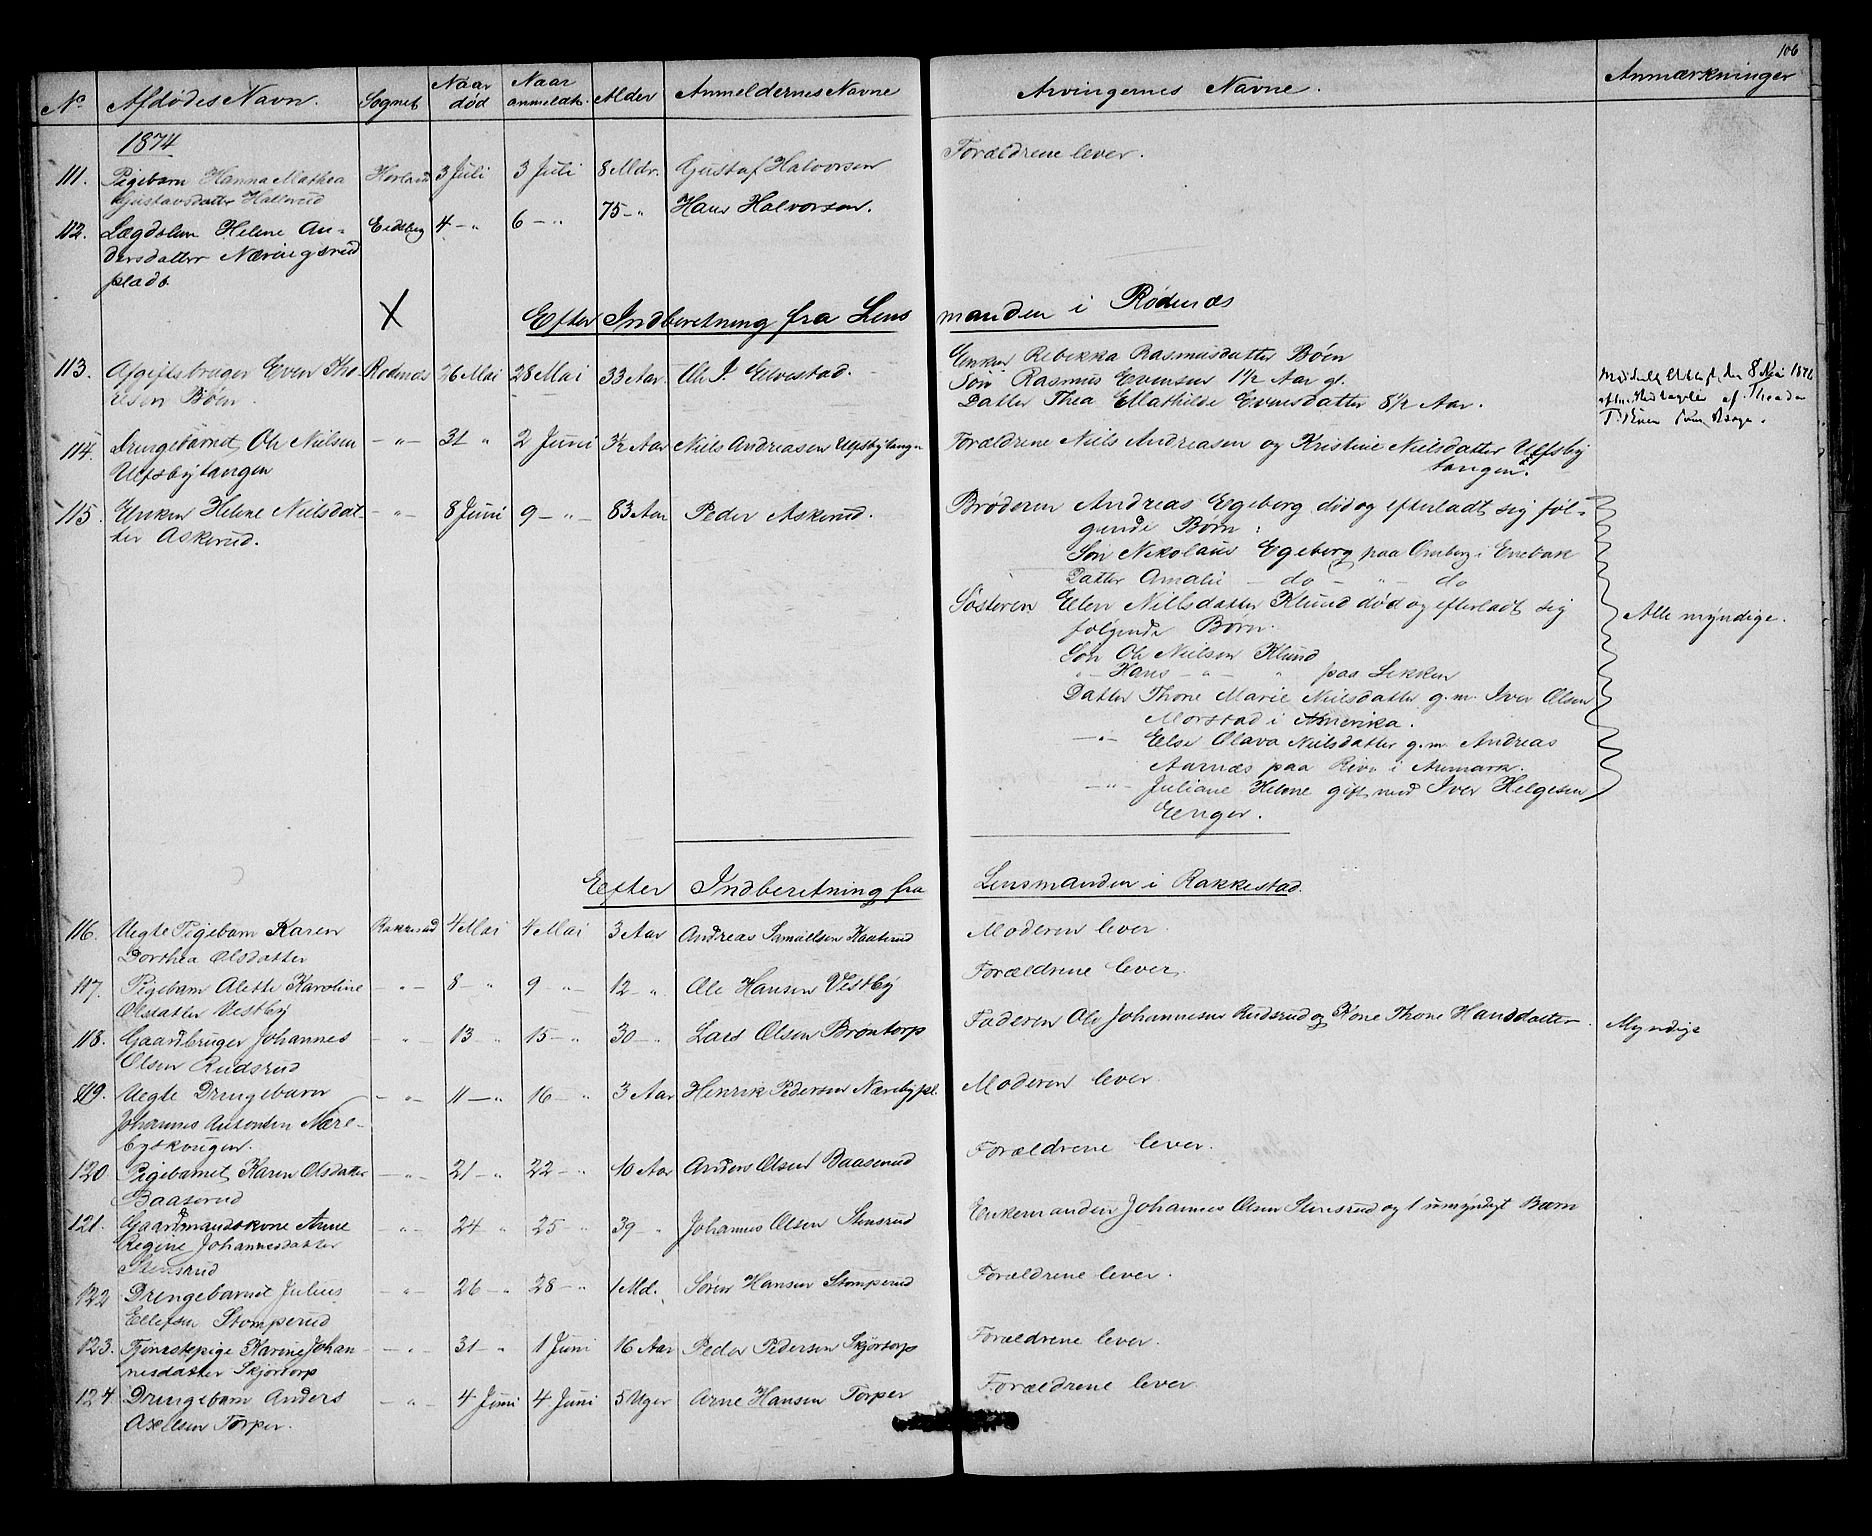 106
No. Afdødes Navn. Sognet Naar død Naar anmeldt. Alder Anmeldernes Navne Arvingernes Navne. Anmærkninger
1874
111. Pigebarn Hanna Mathea Horland 3 Juli 3 Juli 8 Mdr. Gustaf Halvorsen Forældrene lever.
Gustavsdatter Hallerud
112. Lægdslem Helene An- Eidsberg 4 - " 6 - " 75 - " Hans Halvorsen.
dersdatter Næringsrud
plads
X
Efter Indberetning fra Lensmanden i Rødenæs
113. Afgiftsbruger Even Tho- Rødenæs 26 Mai 28 Mai 33 Aar. Ole J. Elvestad. Enken Rebekka Rasmusdatter Bøen
resen Bøen. Søn Rasmus Evensen 1 1/2 Aar gl.
Datter Thea Mathilde Evensdatter 8 1/2 Aar.
den 8 Mai 1876
af Theodor
114. Drengebarnet Ole Nielsen - " - 31 " 2 Juni 3 1/2 Aar Niels Andreasen Ulfsbytangen Forældrene Niels Andreasen og Kristine Nielsdatter Ulfsby
Ulfsbytangen tangen.
115. Enken Helene Nielsdat- - " - 8 Juni 9 - " - 83 Aar Peder Askerud. Brøderen Andreas Egeberg død og efterladt sig føl-
ter Askerud. gende Børn:
Søn Nikolaus Egeberg paa i Enebak
Datter Amalie - do - " - do
Søsteren Ellen Nielsdatter Klund død og efterladt sig
følgende Børn. Alle myndige.
Søn Ole Nielsen Klund
" - Hans - " - " paa Likken
Datter Thone Marie Nielsdatter g. m. Iver Olsen
Morstad i Amerika.
- " - Else Olava Nielsdatter g. m. Andreas
Aarnæs paa i Aremark.
- " - Juliane Helene gift med Iver Helgesen
Eenger.
Efter Indberetning fra Lensmanden i Rakkestad.
116. Uegte Pigebarn Karen Rakkestad 4 Mai 4 Mai 3 Aar Andreas Samuelsen Kaaterud Moderen lever.
Dorthea Olsdatter
117. Pigebarn Alette Karoline - " - 8 - " 9 - " - 12 - " Ole Hansen Vestby Forældrene lever.
Olsdatter Vestby
118. Gaardbruger Johannes - " - 13 - " 15 - " 30 - " Lars Olsen Brøntorp Faderen Ole Johannesen Rudsrud og Kone Thone Hansdatter. Myndige
Olsen Rudsrud
119. Uegte Drengebarn - " - 11 - " 16 - " 3 Aar Henrik Pedersen Nærebypl. Moderen lever.
Johannes Antonsen Nære-
byskougen.
120 Pigebarnet Karen Olsdatter - " - 21 - " 22 - " 10 Aar Anders Olsen Baaserud Forældrene lever.
Baaserud
121. Gaardmandskone Anne - " - 24 " 25 " 39 " Johannes Olsen Stensrud Enkemanden Johannes Olsen Stensrud og 1 umyndigt Barn
Regine Johannesdatter
Stensrud
122 Drengebarnet Julius - " - 26 - " 28 - " 1 Md. Søren Hansen Stomperud Forældrene lever.
Ellefsen Stomperud
123. Tjenestepige Karine Johan- - " - 31 - " 1 Juni 16 Aar Peder Pedersen Skjørtorp Forældrene lever.
nesdatter Skjørtorp
124. Drengebarn Anders - " - 4 Juni 4 Juni 5 Uger Arne Hansen Torper Forældrene lever.
Axelsen Torper.